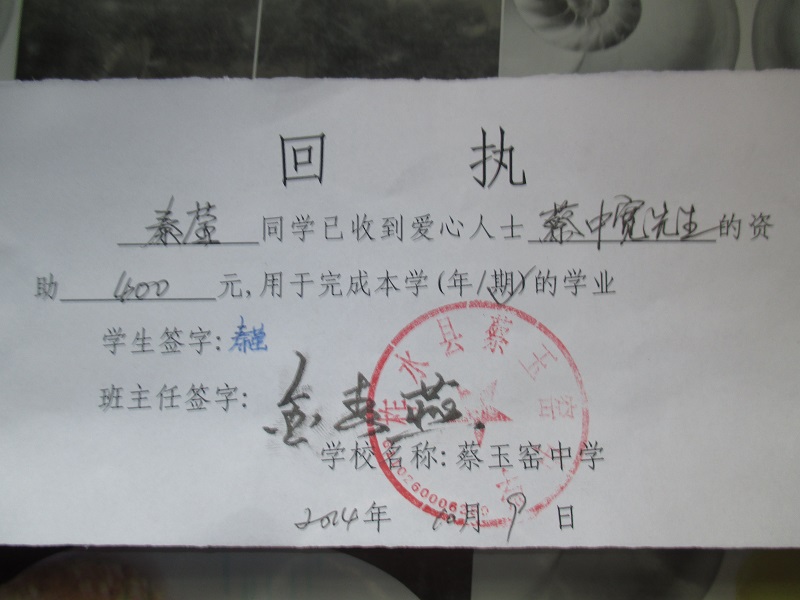 回 执
秦莹 同学已收到爱心人士 蔡中宽先生 的资
助 600 元,用于完成本学(年/期)的学业
学生签字:秦莹
班主任签字:金春燕
学校名称:蔡玉窑中学
2014年 10月 9 日
柞水县蔡玉窑